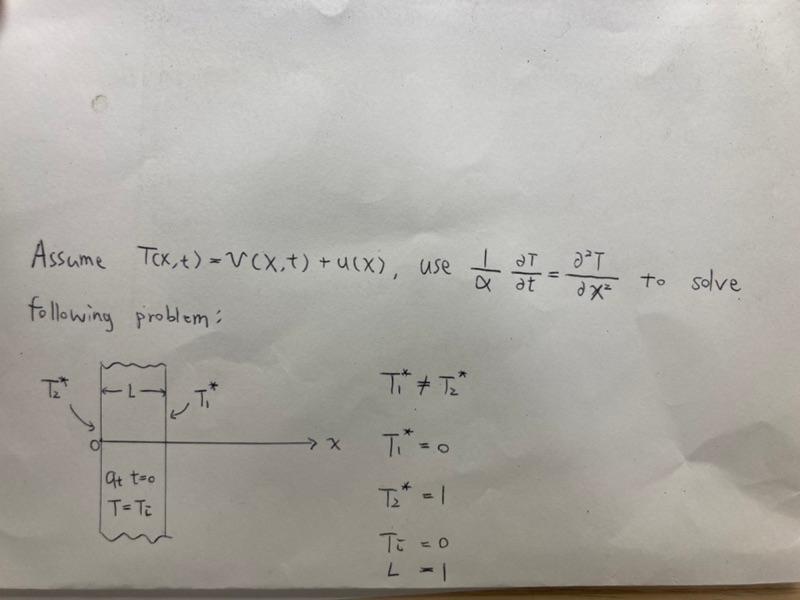 Assume T(x,t) = V(x,t) + u(x), use 1/α ∂T/∂t = ∂²T/∂x² to solve
following problem:
T₂* L T₁* T₁* ≠ T₂*
0 x T₁* = 0
at t=0 T₂* = 1
T=Tᵢ Tᵢ = 0
L = 1